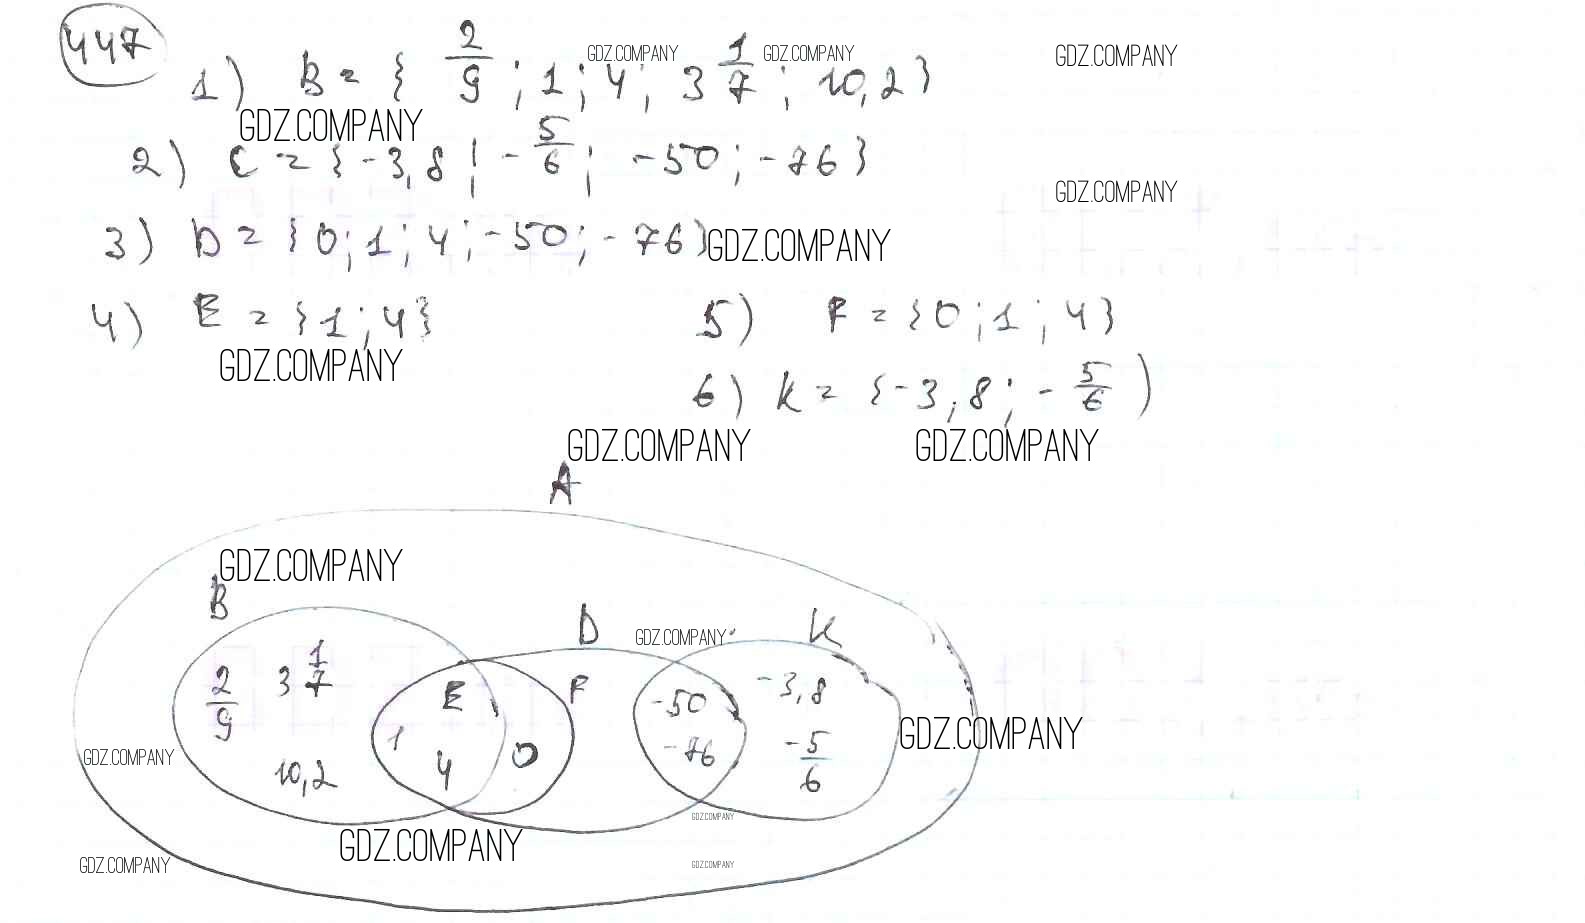 447
1) B = { 2/9 ; 1 ; 4 ; 3 1/7 ; 10,2 }
GDZ.COMPANY GDZ.COMPANY GDZ.COMPANY
GDZ.COMPANY
2) C = { -3,8 ; -5/6 ; -50 ; -76 }
GDZ.COMPANY
3) D = { 0 ; 1 ; 4 ; -50 ; -76 )
GDZ.COMPANY
4) E = { 1 ; 4 }
5) F = { 0 ; 1 ; 4 }
GDZ.COMPANY
6) K = { -3,8 ; -5/6 )
GDZ.COMPANY GDZ.COMPANY
A
GDZ.COMPANY
B D K
GDZ.COMPANY
2/9 3 1/7 E F -50 -3,8
1 4 0 -76 -5/6
10,2
GDZ.COMPANY GDZ.COMPANY
GDZ.COMPANY
GDZ.COMPANY
GDZ.COMPANY GDZ.COMPANY